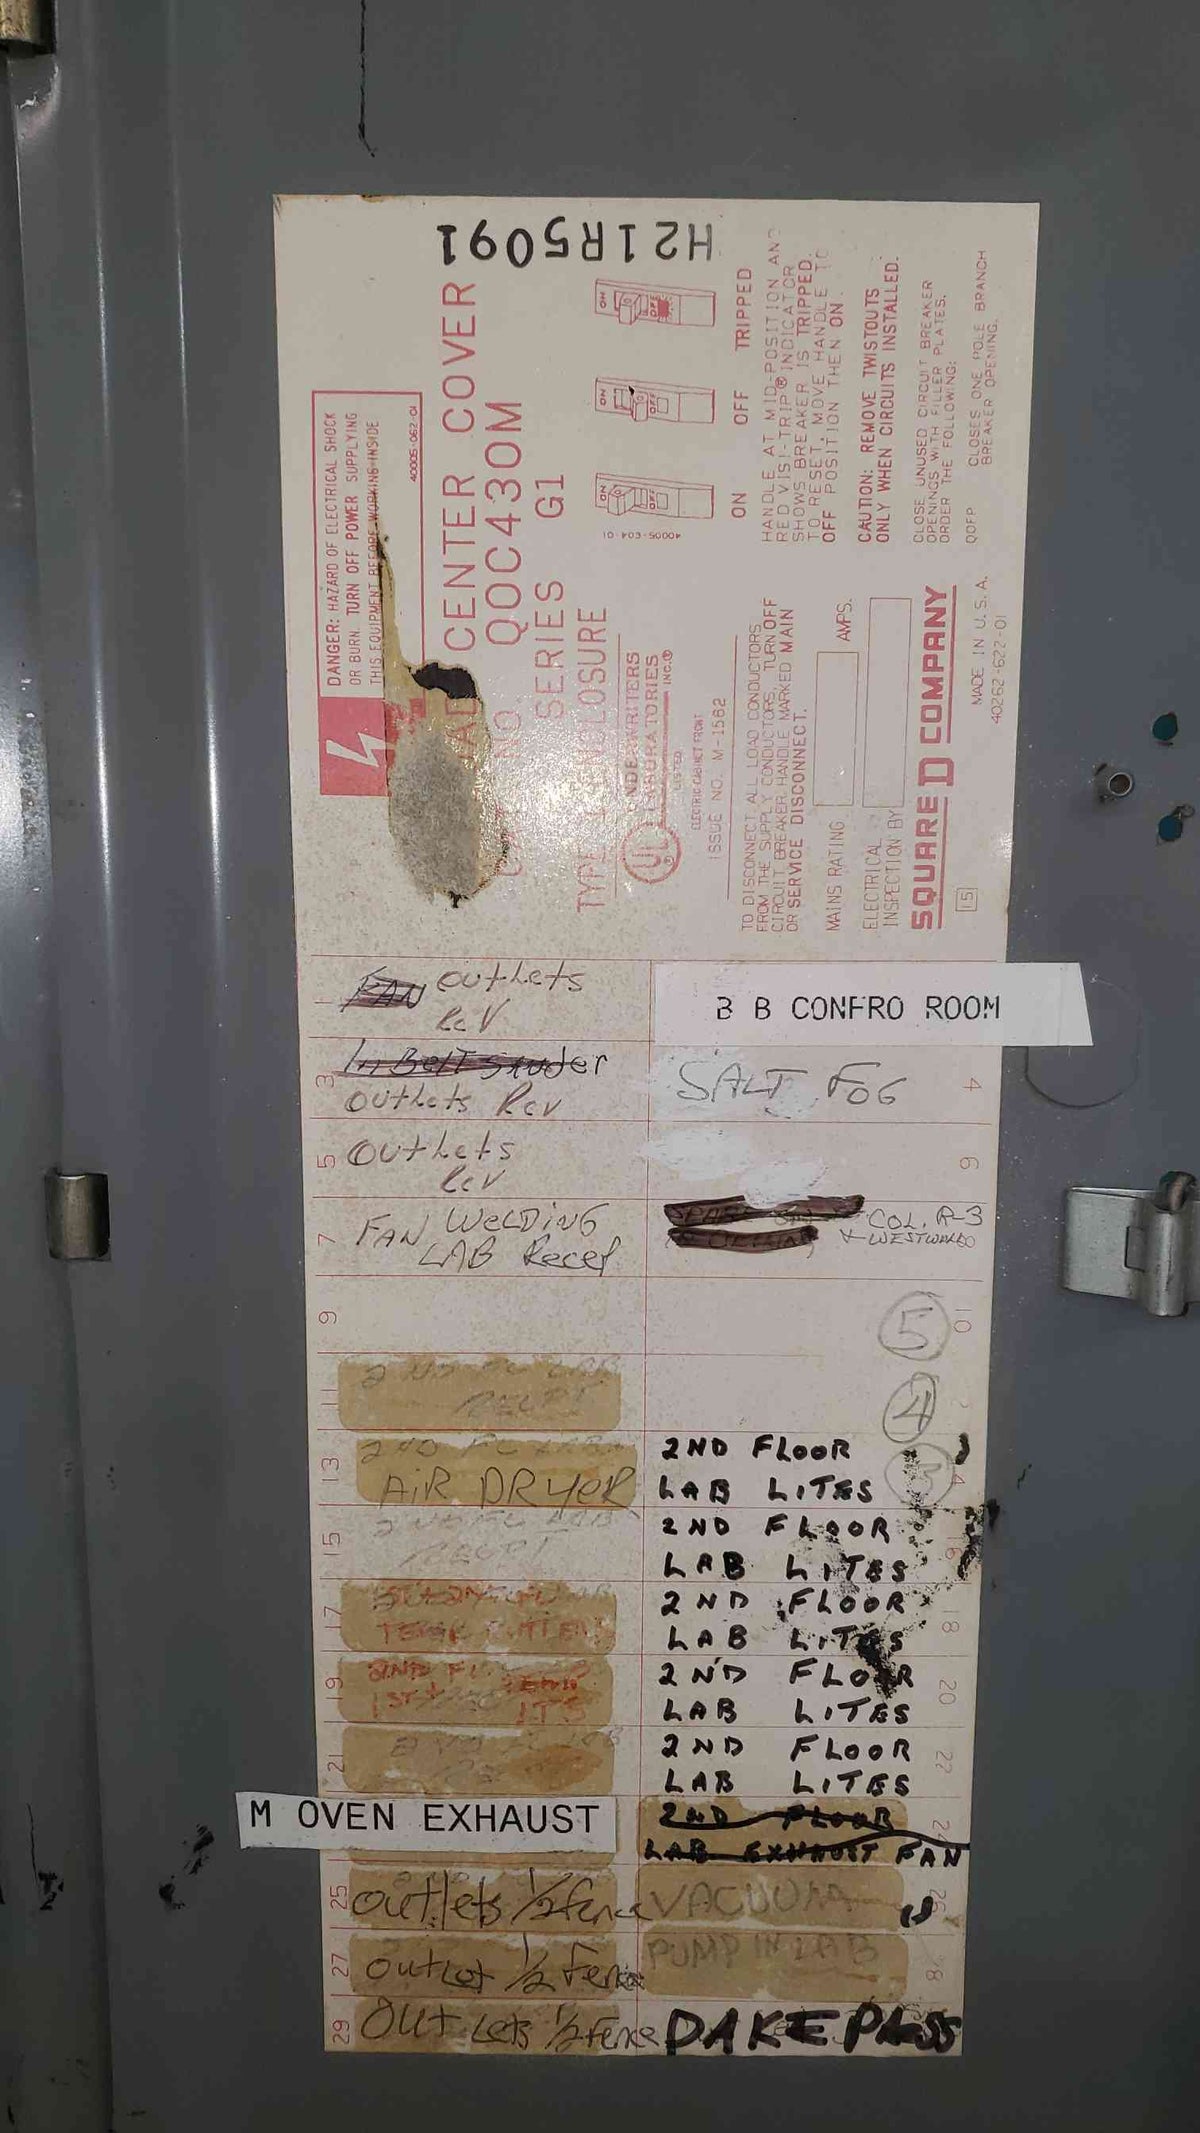 H21R5091
DANGER: HAZARD OF ELECTRICAL SHOCK
OR BURN. TURN OFF POWER SUPPLYING
THIS EQUIPMENT BEFORE WORKING INSIDE
40005-062-01
CENTER COVER
NO. QOC430M
SERIES G1
TYPE 1 ENCLOSURE
UNDERWRITERS
LABORATORIES
INC.®
UL
®
LISTED
ELECTRIC CABINET FRONT
ISSUE NO. M-1562
TO DISCONNECT ALL LOAD CONDUCTORS
FROM THE SUPPLY CONDUCTORS, TURN OFF
CIRCUIT BREAKER HANDLE MARKED MAIN
OR SERVICE DISCONNECT.
MAINS RATING AMPS.
ELECTRICAL
INSPECTION BY
SQUARE D COMPANY
15
MADE IN U.S.A.
40262-622-01
ON OFF
ON OFF
ON OFF
40005-603-01
ON OFF TRIPPED
HANDLE AT MID-POSITION AND
RED VISI-TRIP® INDICATOR
SHOWS BREAKER IS TRIPPED.
TO RESET, MOVE HANDLE TO
OFF POSITION THEN ON.
CAUTION: REMOVE TWISTOUTS
ONLY WHEN CIRCUITS INSTALLED.
CLOSE UNUSED CIRCUIT BREAKER
OPENINGS WITH FILLER PLATES.
ORDER THE FOLLOWING:
QOFP CLOSES ONE POLE BRANCH
BREAKER OPENING.
1 FAN OUTLETS
RCV
B B CONFRO ROOM
3 In BELT Sander
OUTLETS RCV
SALT FOG 4
5 OUTLETS
RCV
6
7 FAN WELDING
LAB Recep
SPARE
COL. A-3
+ WESTWARD
9
5 10
11 2ND FL LAB
RECPT
4
13 2ND FL LAB
AIR DRYER
2ND FLOOR
LAB LITES
15 2ND FL LAB
RECPT
2ND FLOOR
LAB LITES 16
17
2ND FLOOR
LAB LITES 18
19 2ND FL
1ST +
2ND FLOOR
LAB LITES 20
21
2ND FLOOR
LAB LITES 22
M OVEN EXHAUST
2ND FLOOR
LAB EXHAUST FAN
25 OUTLETS 1/2 Fence
VACUUM 26
27 OUTLET 1/2 Fence
PUMP IN LAB 28
29 OUTLETS 1/2 Fence
DAKE PASS